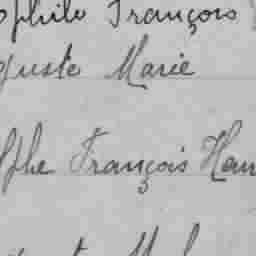 ophile François
guste Marie
lphe François Han